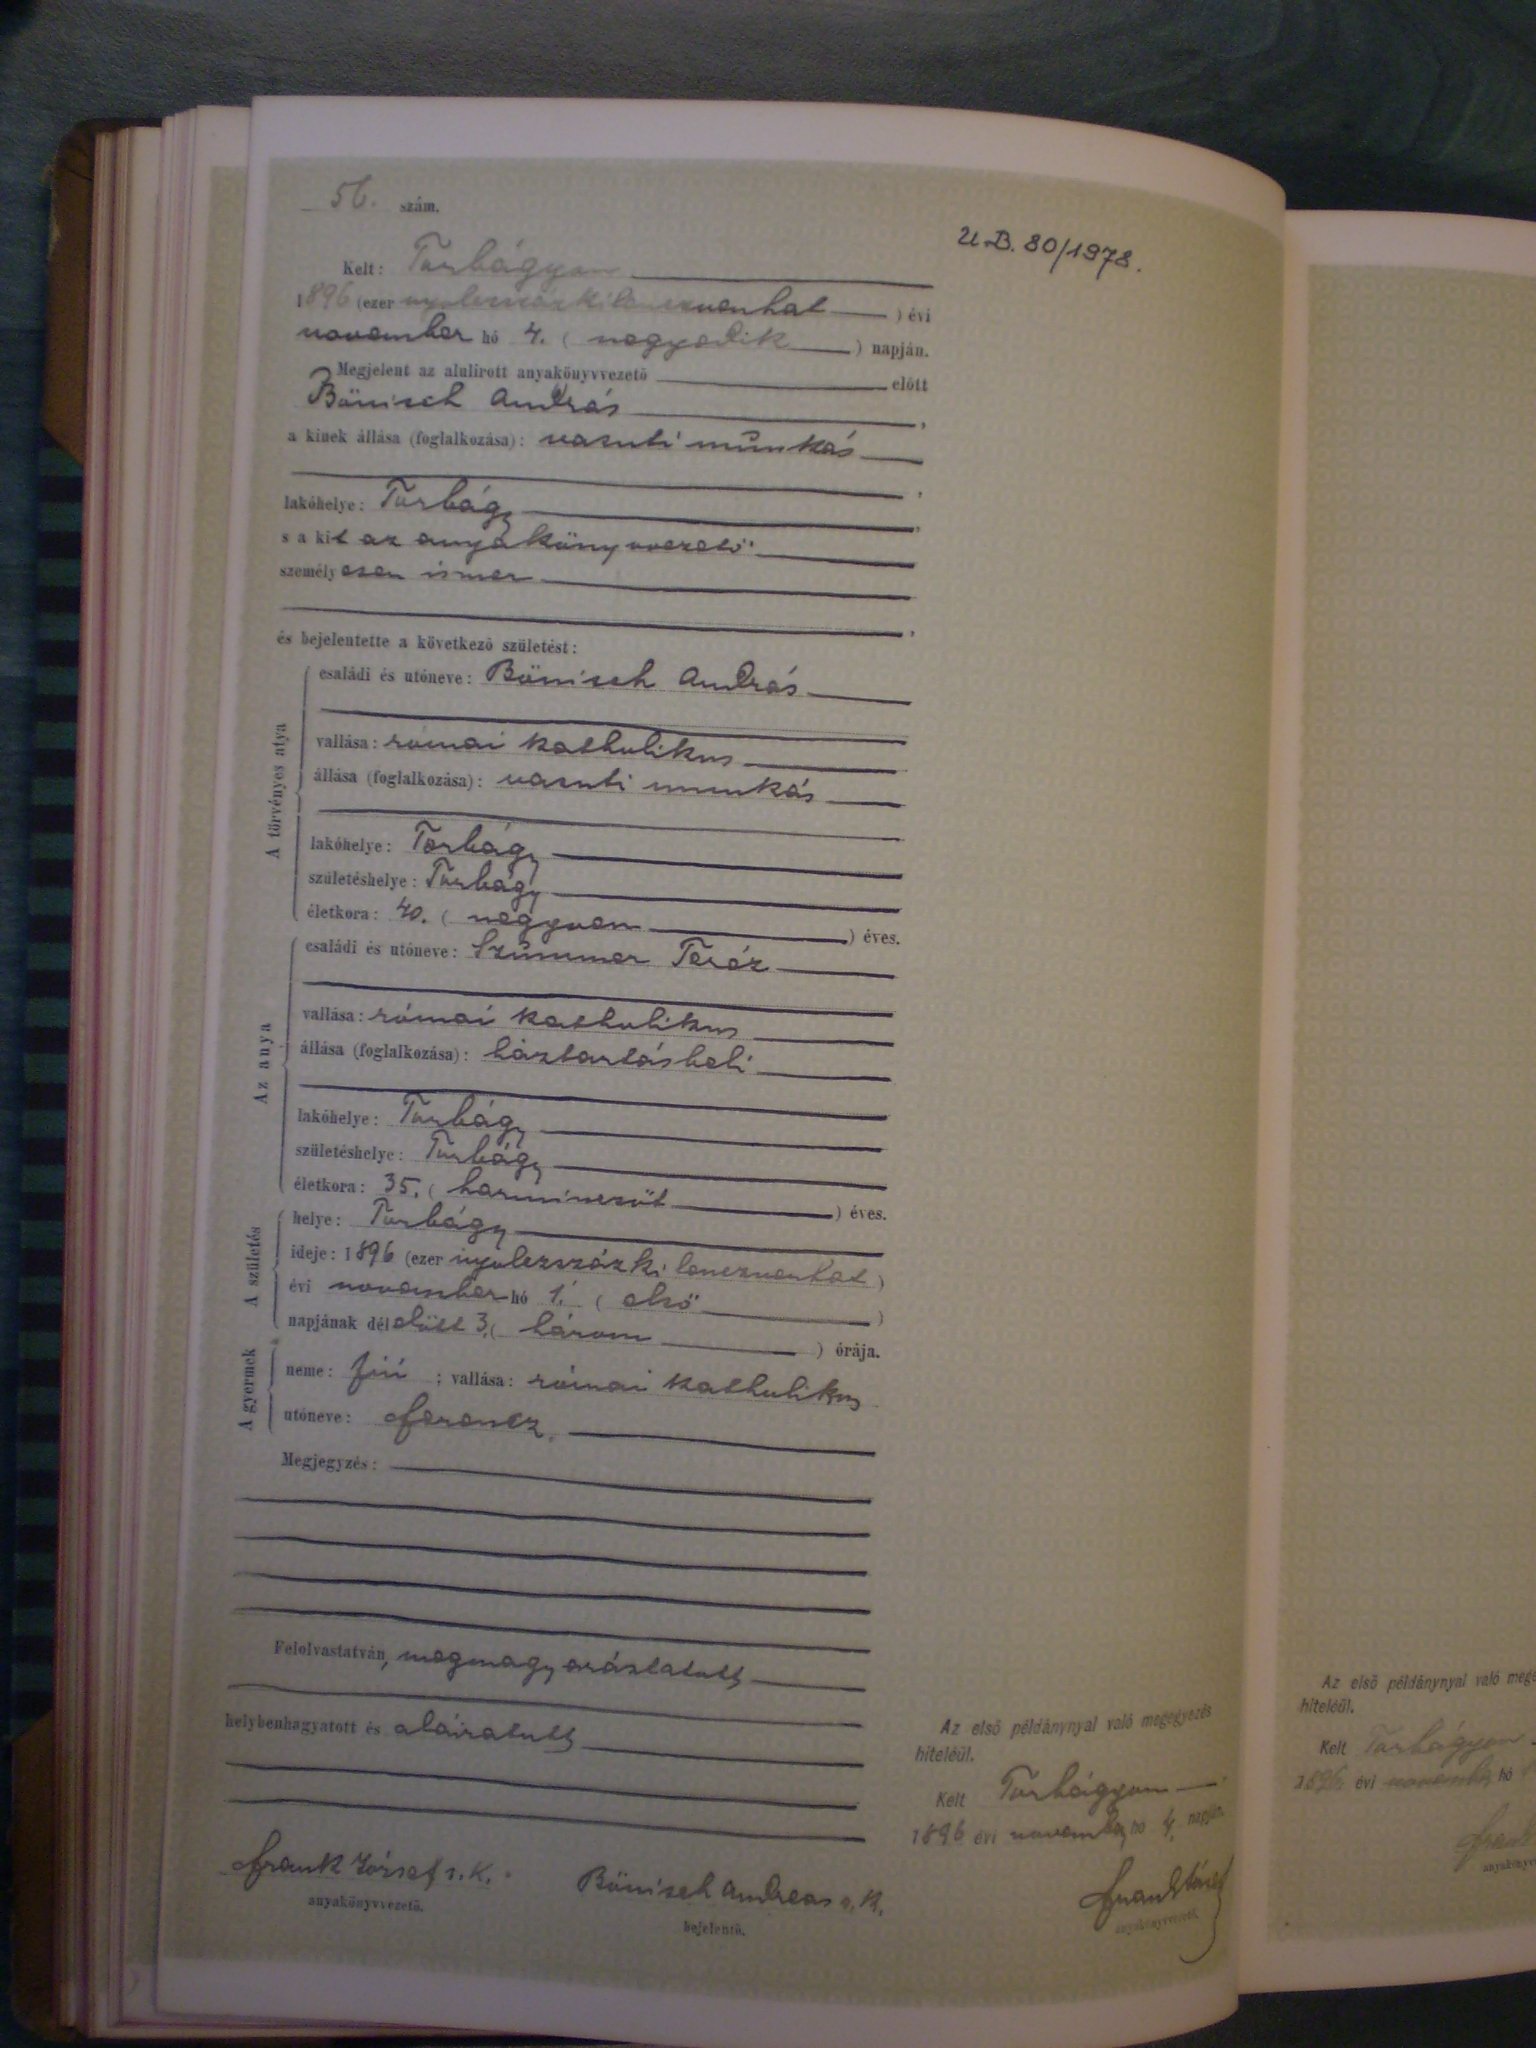 56. szám.
U.B. 80/1978.
Kelt: Torbágyon
1896 (ezer nyolczszázkilenczvenhat) évi
november hó 4. (negyedik) napján.
Megjelent az alulirott anyakönyvvezető előtt
Bönisch András,
a kinek állása (foglalkozása): vasuti munkás,
lakóhelye: Torbágy,
s a kit az anyakönyvvezető
személyesen ismer,
és bejelentette a következő születést:
A törvényes atya
családi és utóneve: Bönisch András
vallása: római katholikus
állása (foglalkozása): vasuti munkás
lakóhelye: Torbágy
születéshelye: Torbágy
életkora: 40. (negyven) éves.
Az anya
családi és utóneve: Szümmer Teréz
vallása: római katholikus
állása (foglalkozása): háztartásbeli
lakóhelye: Torbágy
születéshelye: Torbágy
életkora: 35. (harminczöt) éves.
A születés
helye: Torbágy
ideje: 1896 (ezer nyolczszázkilenczvenhat)
évi november hó 1. (első)
napjának délelőtt 3. (három) órája.
A gyermek
neme: fiú; vallása: római katholikus
utóneve: Ferencz.
Megjegyzés:
Felolvastatván, megmagyaráztatott
helybenhagyatott és aláiratott
Frank József s. k.
anyakönyvvezető.
Bönisch Andreas s. k.
bejelentő.
Az első példánynyal való megegyezés
hiteléül.
Kelt Torbágyon
1896 évi november hó 4. napján.
Frank József
anyakönyvvezető.
Az első példánynyal való
hiteléül.
Kelt Torbágyon
1896 évi november hó